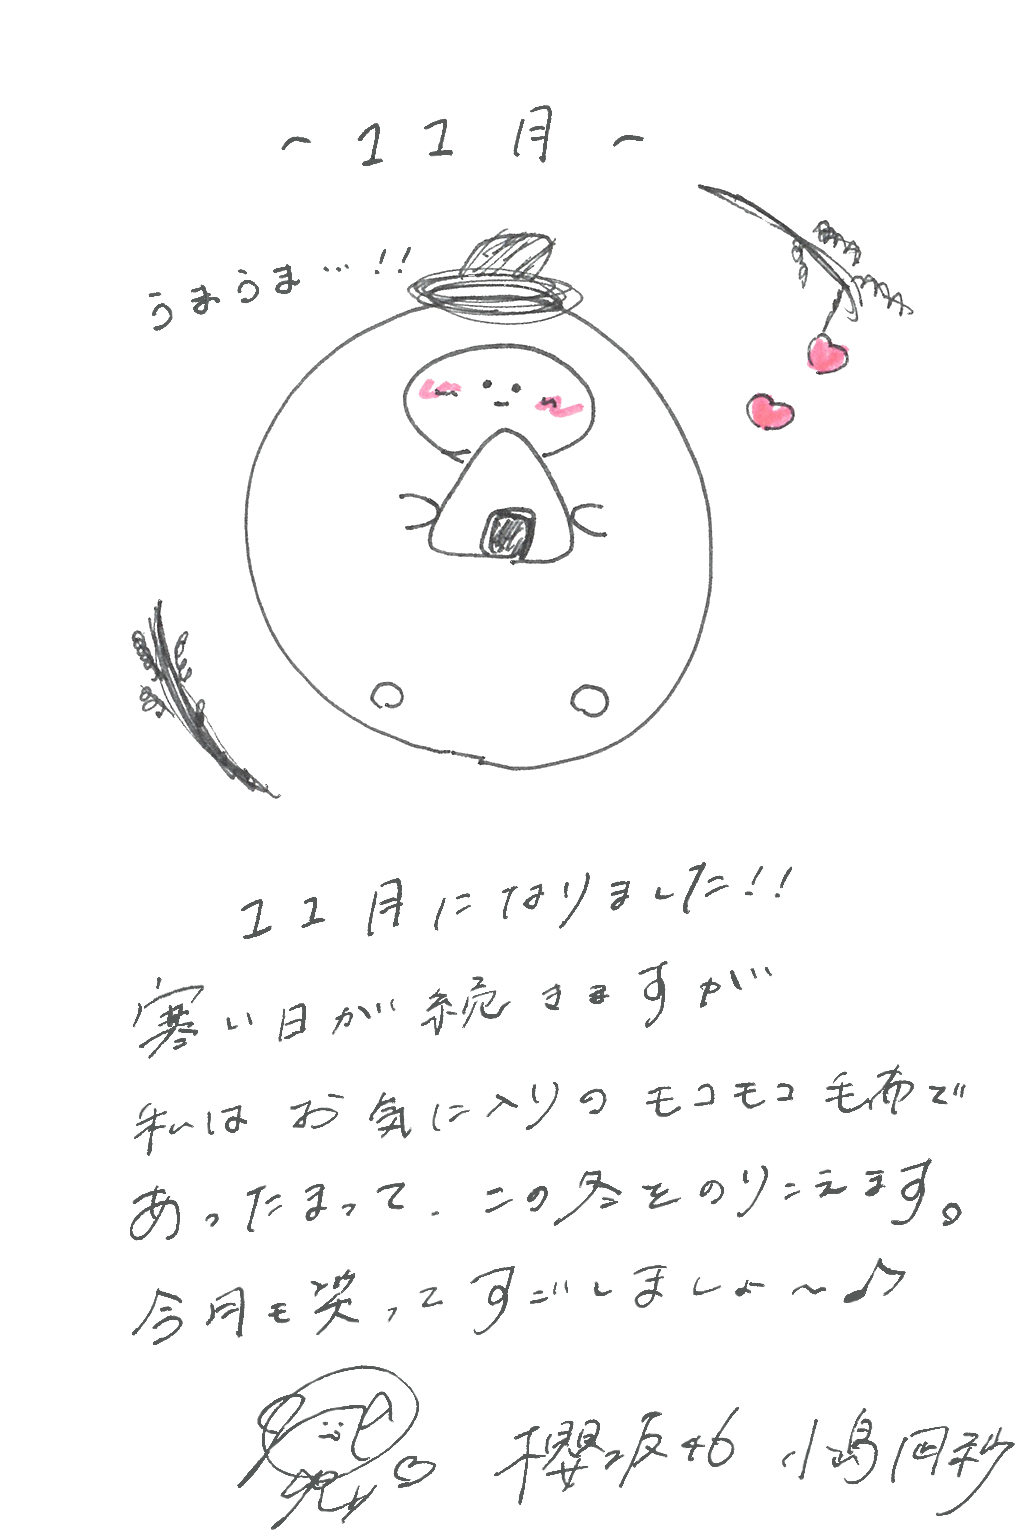 ~11月~
うまうま…!!
11月になりました!!
寒い日が続きますが
私はお気に入りのモコモコ毛布で
あったまって、この冬をのりこえます。
今月も笑ってすごしましょ～♪
櫻坂46 小島凪紗